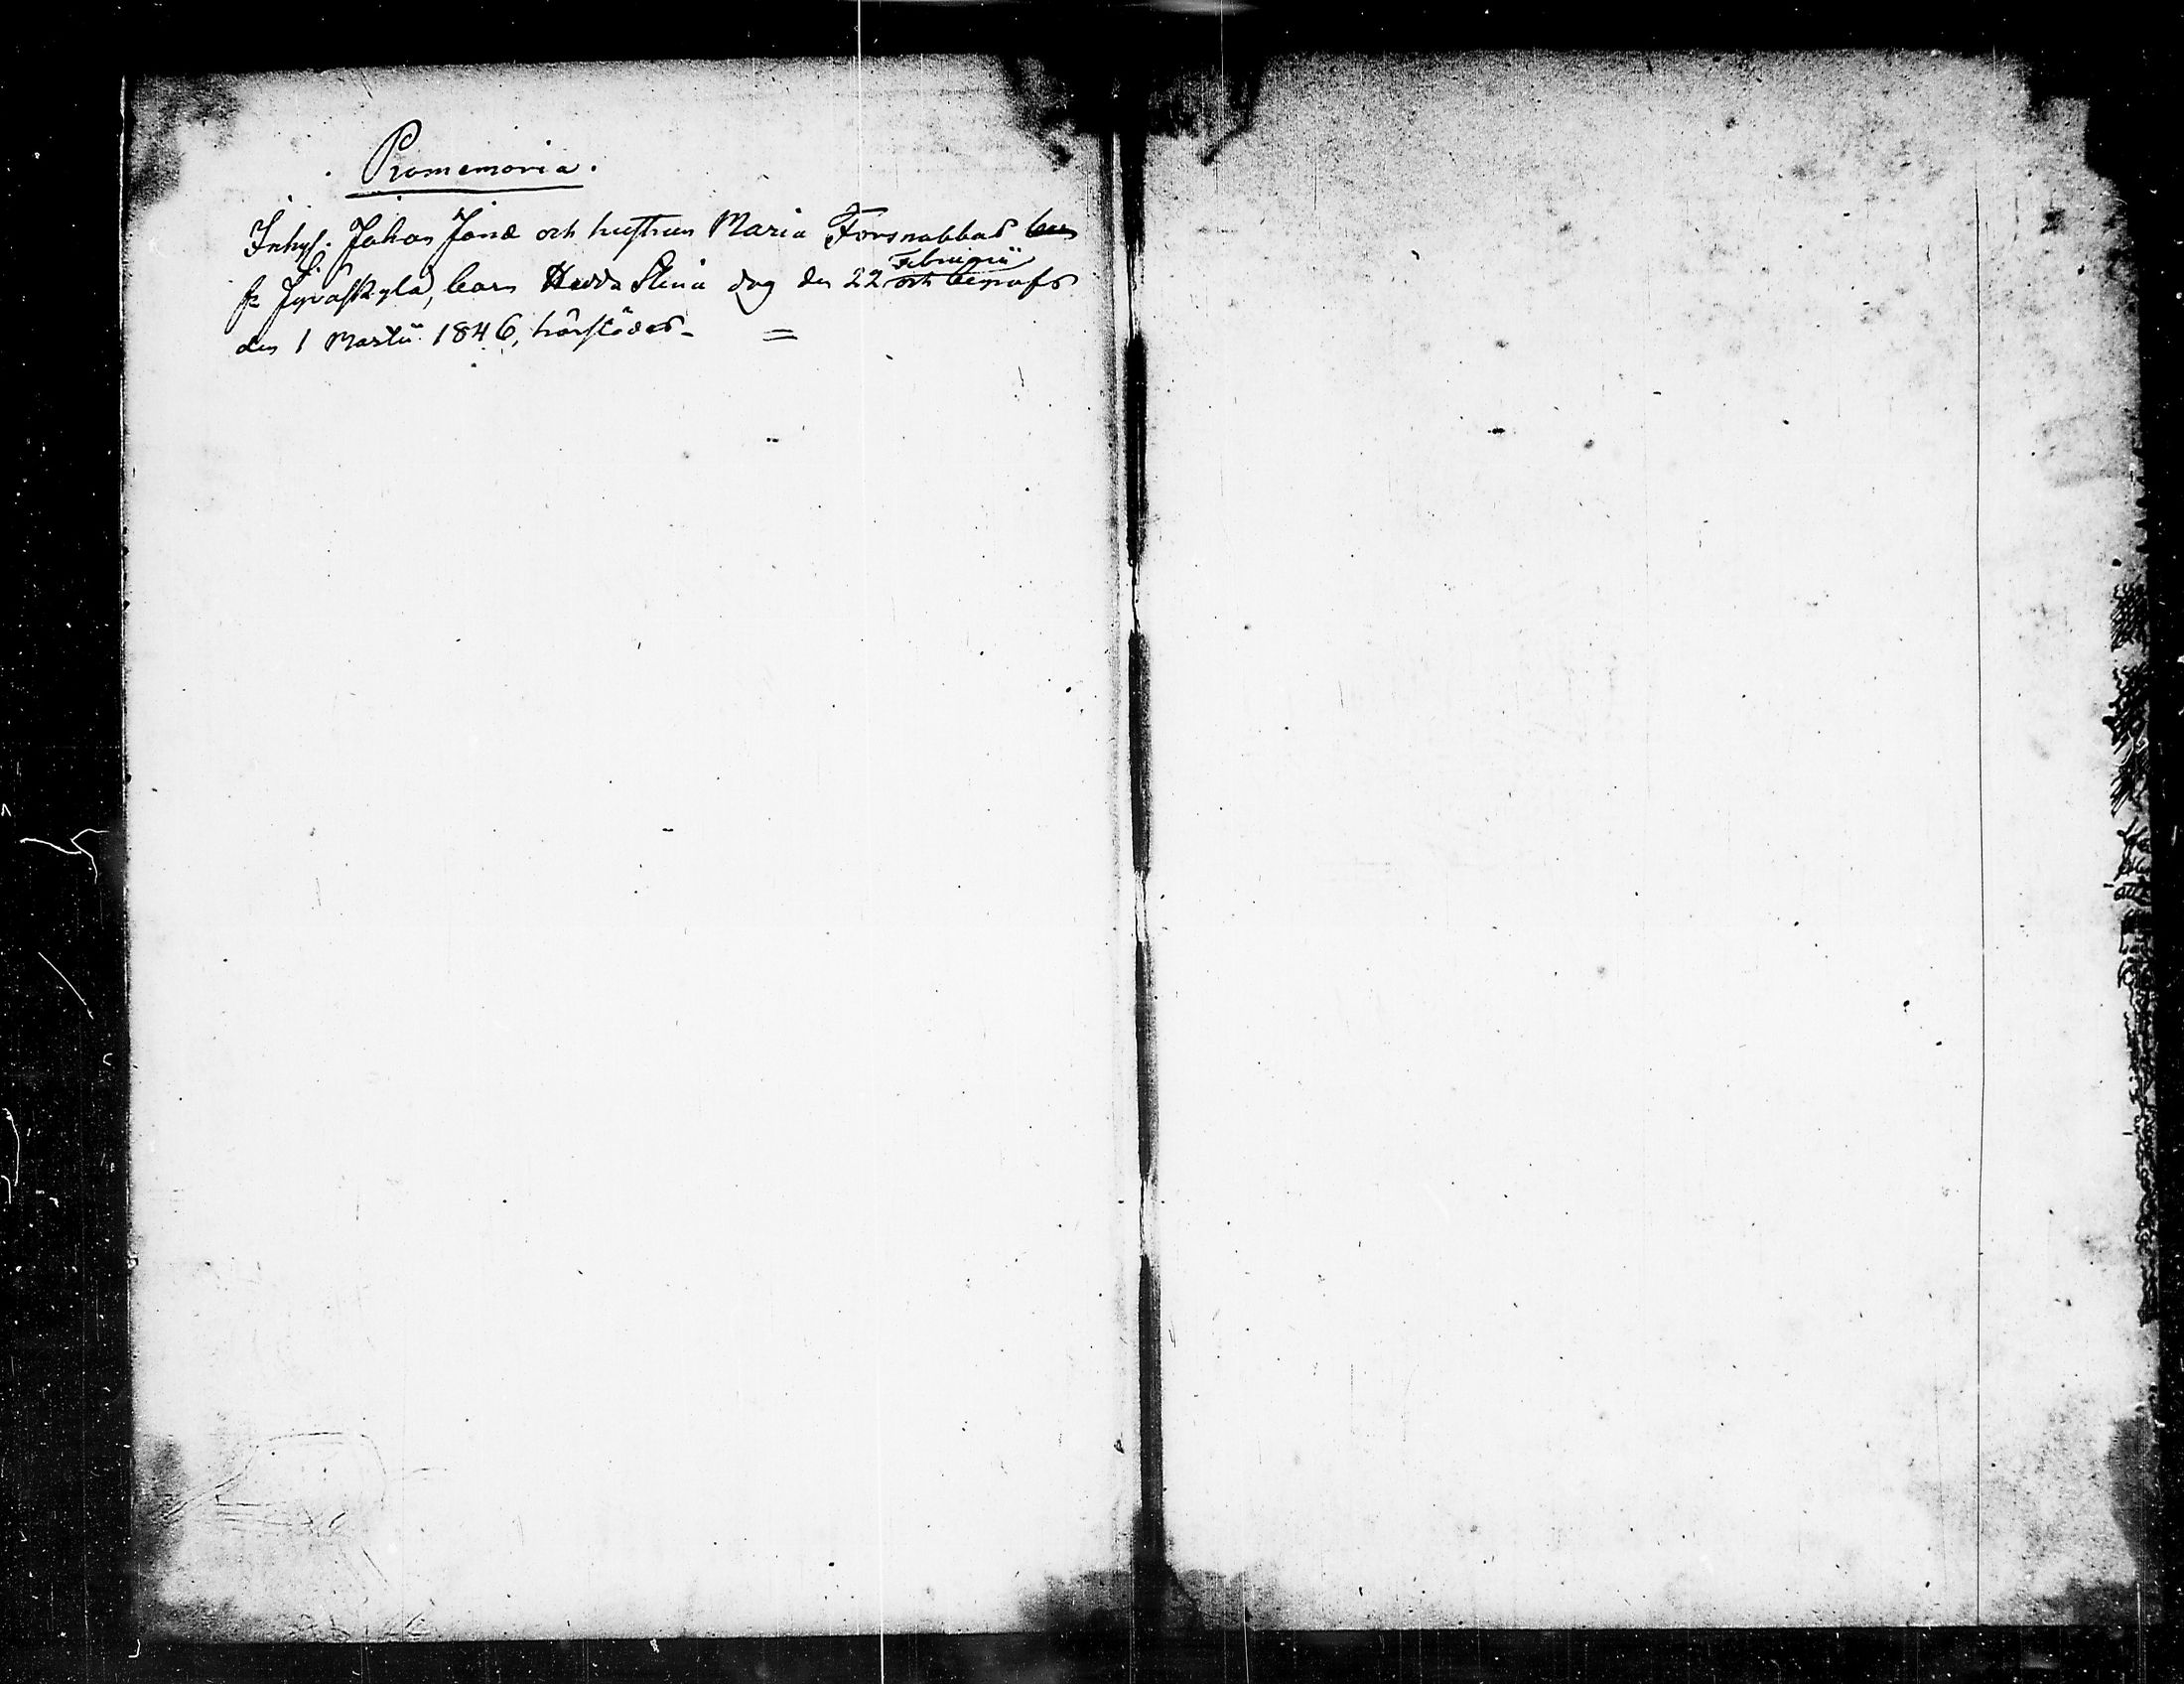 Promemoria.
Inhys. Johan Jonæ och hustrun Maria Forsnabbas
fr Jyväskylä, barn Hedda Stina dog den 22 Februarii och begrofs
den 1 Martii 1846, härstädes =